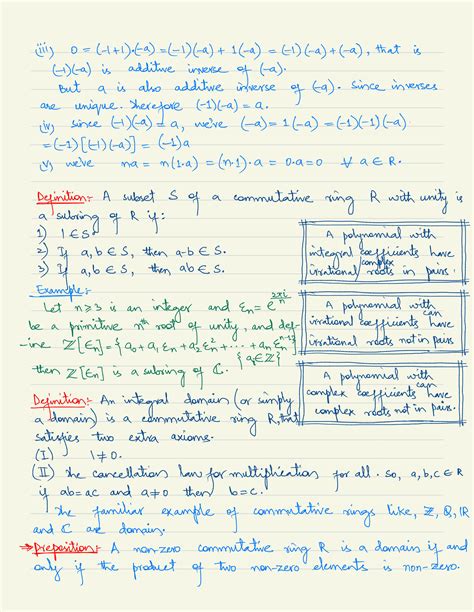 (iii) 0 = (-1+1)·(-a) = (-1)(-a) + 1(-a) = (-1)(-a) + (-a), that is
(-1)(-a) is additive inverse of (-a).
But a is also additive inverse of (-a). Since inverses
are unique. Therefore (-1)(-a) = a.
(iv) since (-1)(-a) = a, we've (-a) = 1(-a) = (-1)(-1)(-a)
= (-1)[(-1)(-a)] = (-1)a
(v) we've na = n(1·a) = (n·1)·a = 0·a = 0 ∀ a ∈ R.
Definition:- A subset S of a commutative ring R with unity is
a subring of R if:
1) 1 ∈ S.
2) If a, b ∈ S, then a-b ∈ S.
3) If a, b ∈ S, then ab ∈ S.
A polynomial with
integral coefficients have
complex
irrational roots in pairs.
Example:-
Let n ≥ 3 is an integer and ξn = e^(2πi/n)
be a primitive nth root of unity, and def-
ine Z[ξn] = {a0 + a1 ξn + a2 ξn^2 + ... + an ξn^(n-1)
{ai ∈ Z}
then Z[ξn] is a subring of C.
A polynomial with
can
irrational coefficients have
irrational roots not in pairs
A polynomial with
can
complex coefficients have
complex roots not in pairs.
Definition:- An integral domain (or simply
a domain) is a commutative ring R, that
satisfies two extra axioms.
(I) 1 ≠ 0.
(II) The cancellation law for multiplication for all. So, a, b, c ∈ R
if ab = ac and a ≠ 0 then b = c.
The familiar example of commutative rings like, Z, Q, IR
and C are domain.
→ Preposition:- A non-zero commutative ring R is a domain if and
only if the product of two non-zero elements is non-zero.